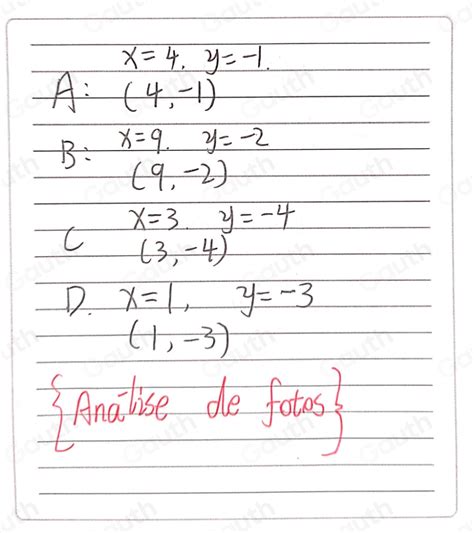 x=4, y=-1.
A: (4,-1)
B: x=9. y=-2
(9,-2)
C x=3. y=-4
(3,-4)
D. x=1, y=-3
(1,-3)
{Análise de fotos}